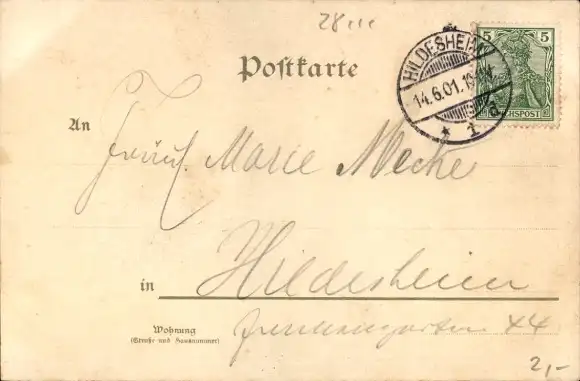 28
Postkarte
HILDESHEIM
14.6.01.
* 1 d.
5 5
REICHSPOST
An
Fräul. Marie
in Hildesheim
Wohnung
(Straße und Hausnummer)
44
2,-